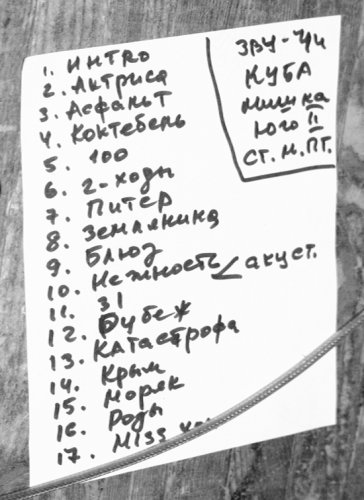 1. ИНТRО
2. Актриса
3. Асфальт
4. Коктебель
5. 100
6. 2-ходы
7. ПИТЕР
8. Земляника
9. Блюз
10. Нежность < акуст.
11. 31
12. Рубеж
13. КАТАСТРОФА
14. Крым
15. Моряк
16. Роды
17. MISS
КУБА
мишка
Юго II
СТ. М. ПТ.